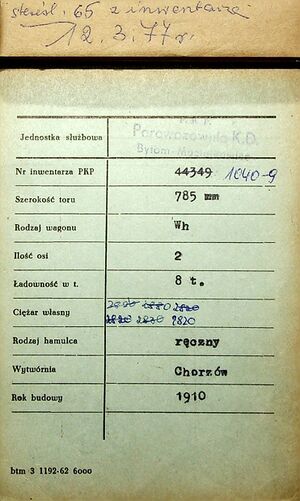 skreśl. 65 z inwentarza
12.3.77 r.
P.K.P.
Jednostka służbowa Parowozownia K.D.
Bytom-
Nr inwentarza PKP 44349 1040-9
Szerokość toru 785 mm
Rodzaj wagonu Wh
Ilość osi 2
Ładowność w t. 8 t.
Ciężar własny 2820
2820 2830 2820
Rodzaj hamulca ręczny
Wytwórnia Chorzów
Rok budowy 1910
btm 3 1192-62 6000